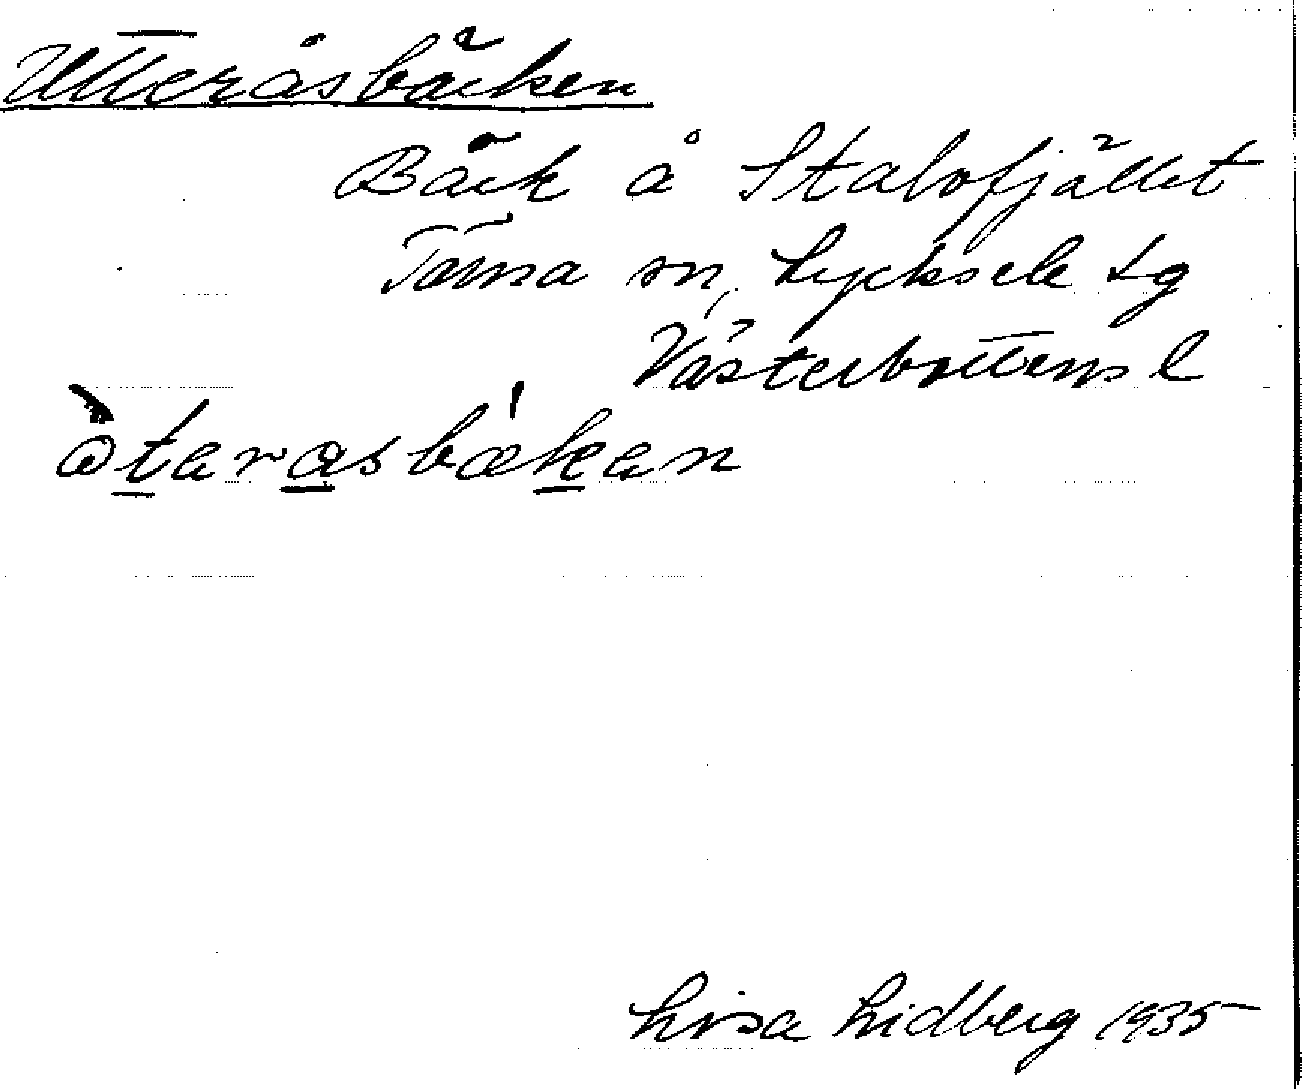 Utteråsbäcken
Bäck å Stalofjället
Tärna sn, Lycksele lg
Västerbottens l
òtaråsbækan
Lisa Lidberg 1935